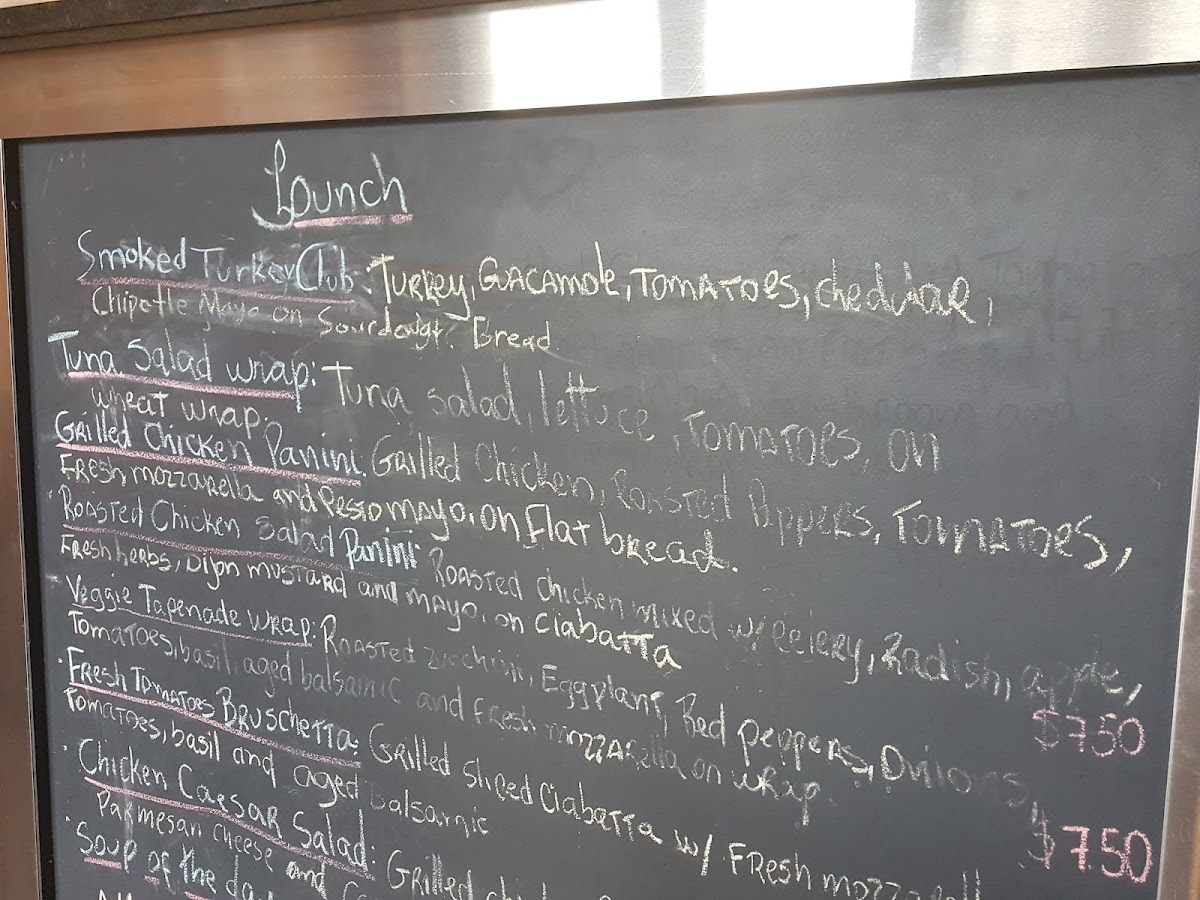 Lounch
Smoked Turkey Club: Turkey, Guacamole, Tomatoes, cheddar,
Chipotle Mayo on Sourdough Bread
Tuna Salad wrap: Tuna salad, lettuce, Tomatoes, on
wheat wrap.
Grilled Chicken Panini Grilled Chicken, Roasted Peppers, Tomatoes,
Fresh mozzarella and Pesto mayo, on Flat bread.
Roasted Chicken Salad Panini Roasted chicken mixed w/ celery, Radish, apple,
Fresh herbs, Dijon mustard and mayo, on Ciabatta
$7.50
Veggie Tapenade wrap: Roasted zucchini, Eggplant, Red peppers, Onions,
Tomatoes, basil, aged balsamic and Fresh mozzarella on wrap.
$7.50
Fresh Tomatoes Bruschetta: Grilled sliced Ciabatta w/ Fresh
Tomatoes, basil and aged balsamic
Chicken Caesar Salad: Grilled
Parmesan cheese and
Soup of the day